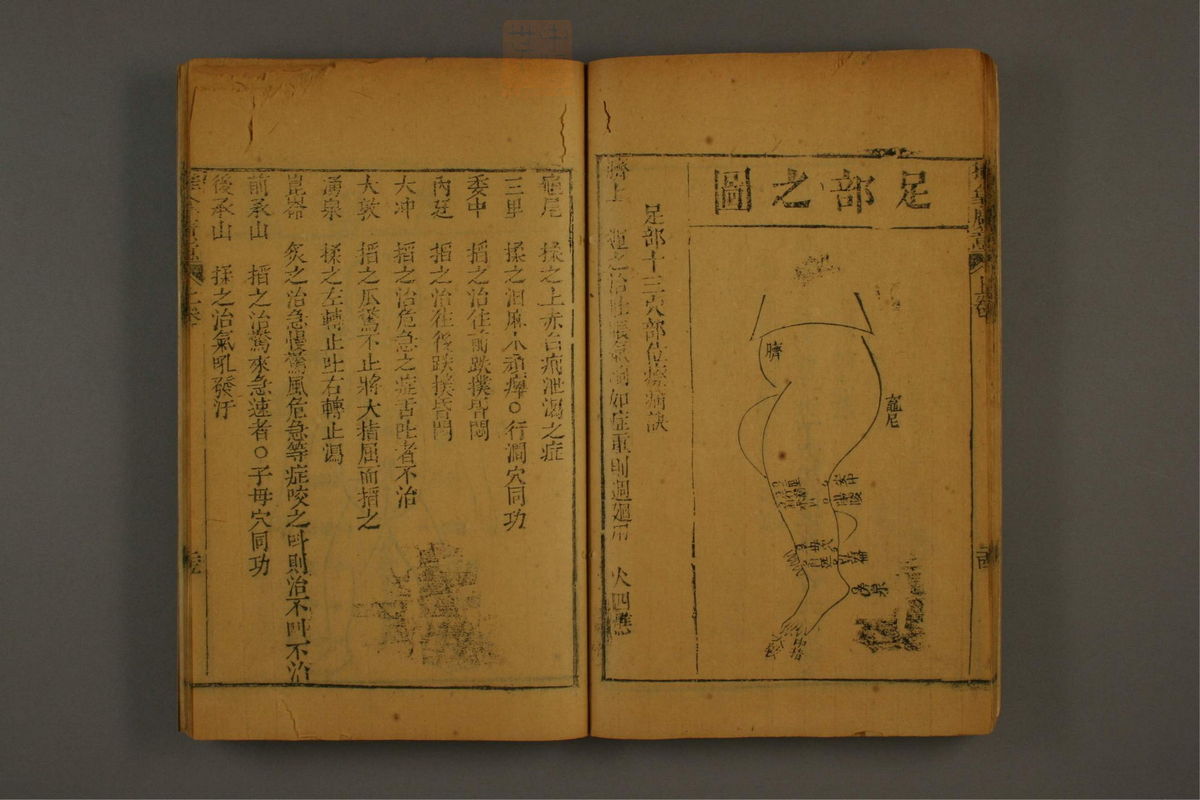 足部之圖
臍
龜尾
足部十三穴部位療病訣
臍上 運之治肚脹氣 如症重則 用 火四
龜尾 揉之止赤白痢泄瀉之症
三里 揉之治麻木頑痺○行澗穴同功
委中 掐之治往前跌撲昏悶
內廷 掐之治往後跌撲昏悶
大冲 掐之治危急之症舌吐者不治
大敦 掐之爪驚不止將大指屈而掐之
湧泉 揉之左轉止吐右轉止瀉
崑崙 灸之治急慢驚風危急等症咬之叫則治不叫不治
前承山 掐之治驚來急速者○子母穴同功
後承山 揉之治氣吼發汗